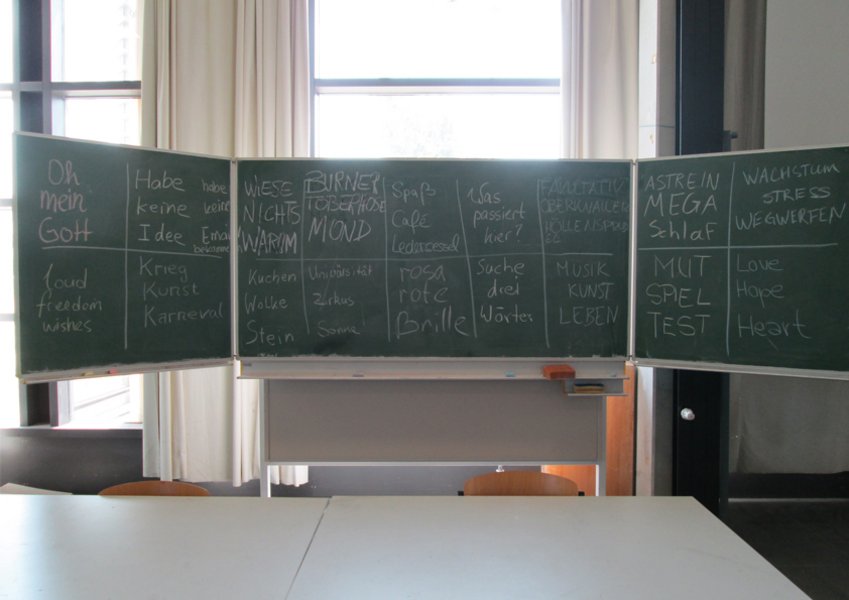 Oh
mein
Gott
Habe
keine
Idee
habe
keine
WIESE
NICHTS
WARUM
BURNER
TOBERHOSE
MOND
Spaß
Café
Ledersessel
Was
passiert
hier?
FAKULTATIV
ASTREIN
MEGA
Schlaf
WACHSTUM
STRESS
WEGWERFEN
loud
freedom
wishes
Krieg
Kunst
Karneval
Kuchen
Wolke
Stein
Universität
Zirkus
Sonne
rosa
rote
Brille
Suche
drei
Wörter
MUSIK
KUNST
LEBEN
MUT
SPIEL
TEST
Love
Hope
Heart